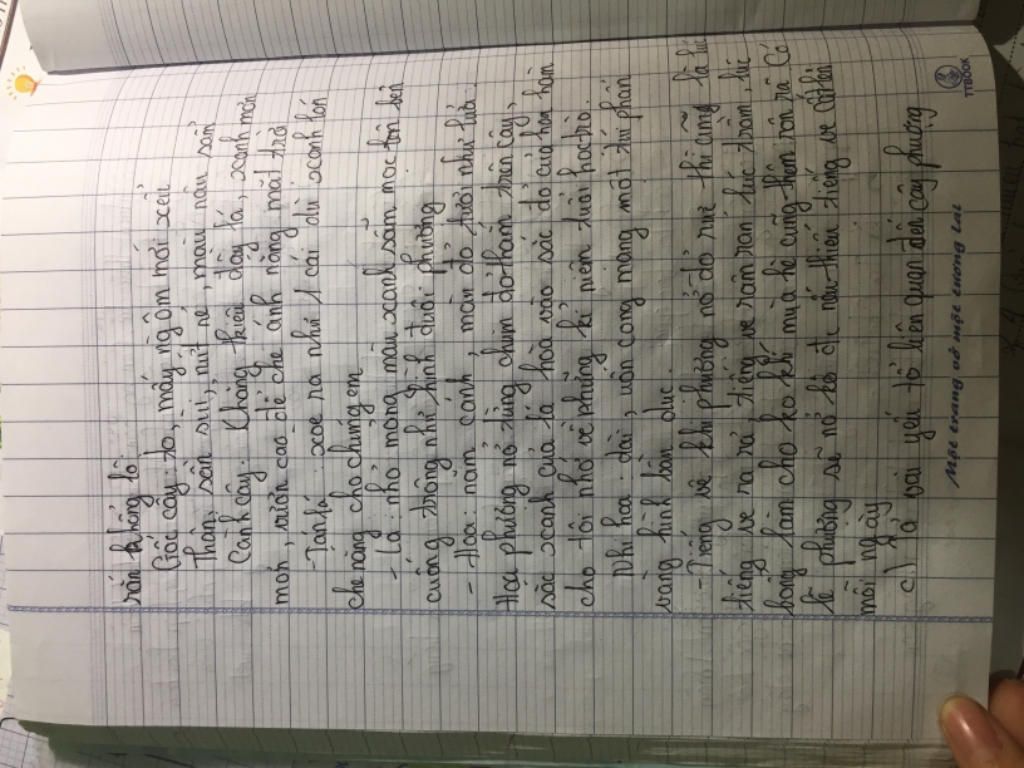 rắn khổng lồ.
Gốc cây: to, mấy ng ôm mới xuể
Thân: sần sùi, nứt nẻ, màu nâu sẫm
Cành cây: Khẳng khiu đầy lá, xanh mơn
mởn, vươn cao để che ánh nắng mặt trời
- Tán lá: xòe ra như 1 cái dù xanh lớn
che nắng cho chúng em
- Lá: nhỏ mỏng màu xanh sẫm mọc hai bên
cuống trông như hình đuôi phượng
- Hoa: năm cánh, màu đỏ tươi như lửa.
Hoa phượng nở từng chùm đỏ thắm trên cây,
sắc xanh của lá hòa vào sắc đỏ của hoa làm
cho tôi nhớ về những kỉ niệm tuổi học trò.
Nhị hoa: dài, uốn cong mang một tí phấn
vàng hình bầu dục.
- Tiếng ve khi phượng nở đỏ rực thì cũng là lúc
tiếng ve ra rả tiếng ve râm ran lúc trầm, lúc
bổng làm cho ko khí mùa hè cũng thêm rộn rã Có
lẽ phượng sẽ nở ko đc nếu thiếu tiếng ve
mỗi ngày
c) 2 là vài yếu tố liên quan đến cây phượng
Một trang vở một tương lai
TTBOOK